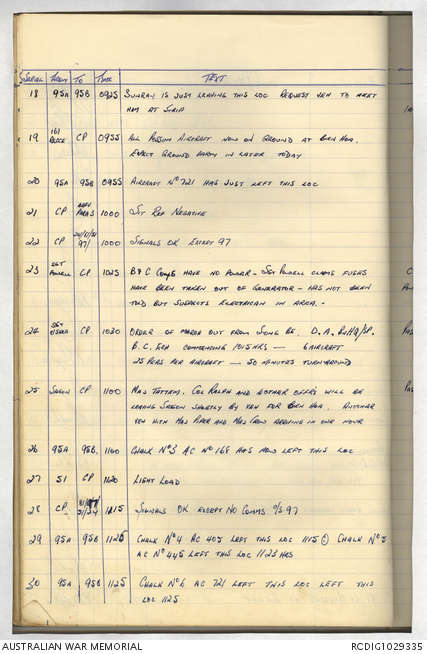 SERIAL FROM TO TIME TEXT
18 95A 95B 0925 SUNRAY IS JUST LEAVING THIS LOC REQUEST VEH TO MEET
HIM AT STRIP
19 161 RECCE CP 0955 ALL POSSUM AIRCRAFT NOW ON GROUND AT BIEN HOA.
EXPECT GROUND PARTY IN LATER TODAY
20 95A 95B 0955 AIRCRAFT No 721 HAS JUST LEFT THIS LOC
21 CP 1000 SIT REP NEGATIVE
22 CP 97/ 1000 SIGNALS OK EXCEPT 97
23 SGT POWELL CP 1025 B & C COYS HAVE NO POWER - SGT POWELL CLAIMS FUSES
HAVE BEEN TAKEN OUT OF GENERATOR - HAS NOT BEEN
TOLD BUT SUSPECTS ELECTRICIAN IN AREA. -
24 SGT CP 1030 ORDER OF MARCH OUT FROM SONG BE. D. A. BNHQ/SP.
B. C. COMMENCING 1015HRS - 6 AIRCRAFT
25 PERS PER AIRCRAFT - 50 MINUTES TURNAROUND
25 SAIGON CP 1100 MAJ TATTEM. COL RALPH AND ANOTHER OFFRS WILL BE
LEAVING SAIGON SHORTLY BY VEH FOR BIEN HOA. ANOTHER
VEH WITH MAJ PIPER AND MAJ ARRIVING IN ONE HOUR
26 95A 95B. 1100 CHALK No 3 AC No 168 HAS NOW LEFT THIS LOC
27 51 CP 1120 LIGHT LOAD
28 CP 1115 SIGNALS OK EXCEPT NO COMMS O/S 97
29 95A 95B 1125 CHALK No 4 AC 403 LEFT THIS LOC 1115 CHALK No 5
AC No 445 LEFT THIS LOC 1123 HRS
30 95A 95B 1125 CHALK No 6 AC 721 LEFT THIS LOC LEFT THIS
LOC 1125
AUSTRALIAN WAR MEMORIAL RCDIG1029335